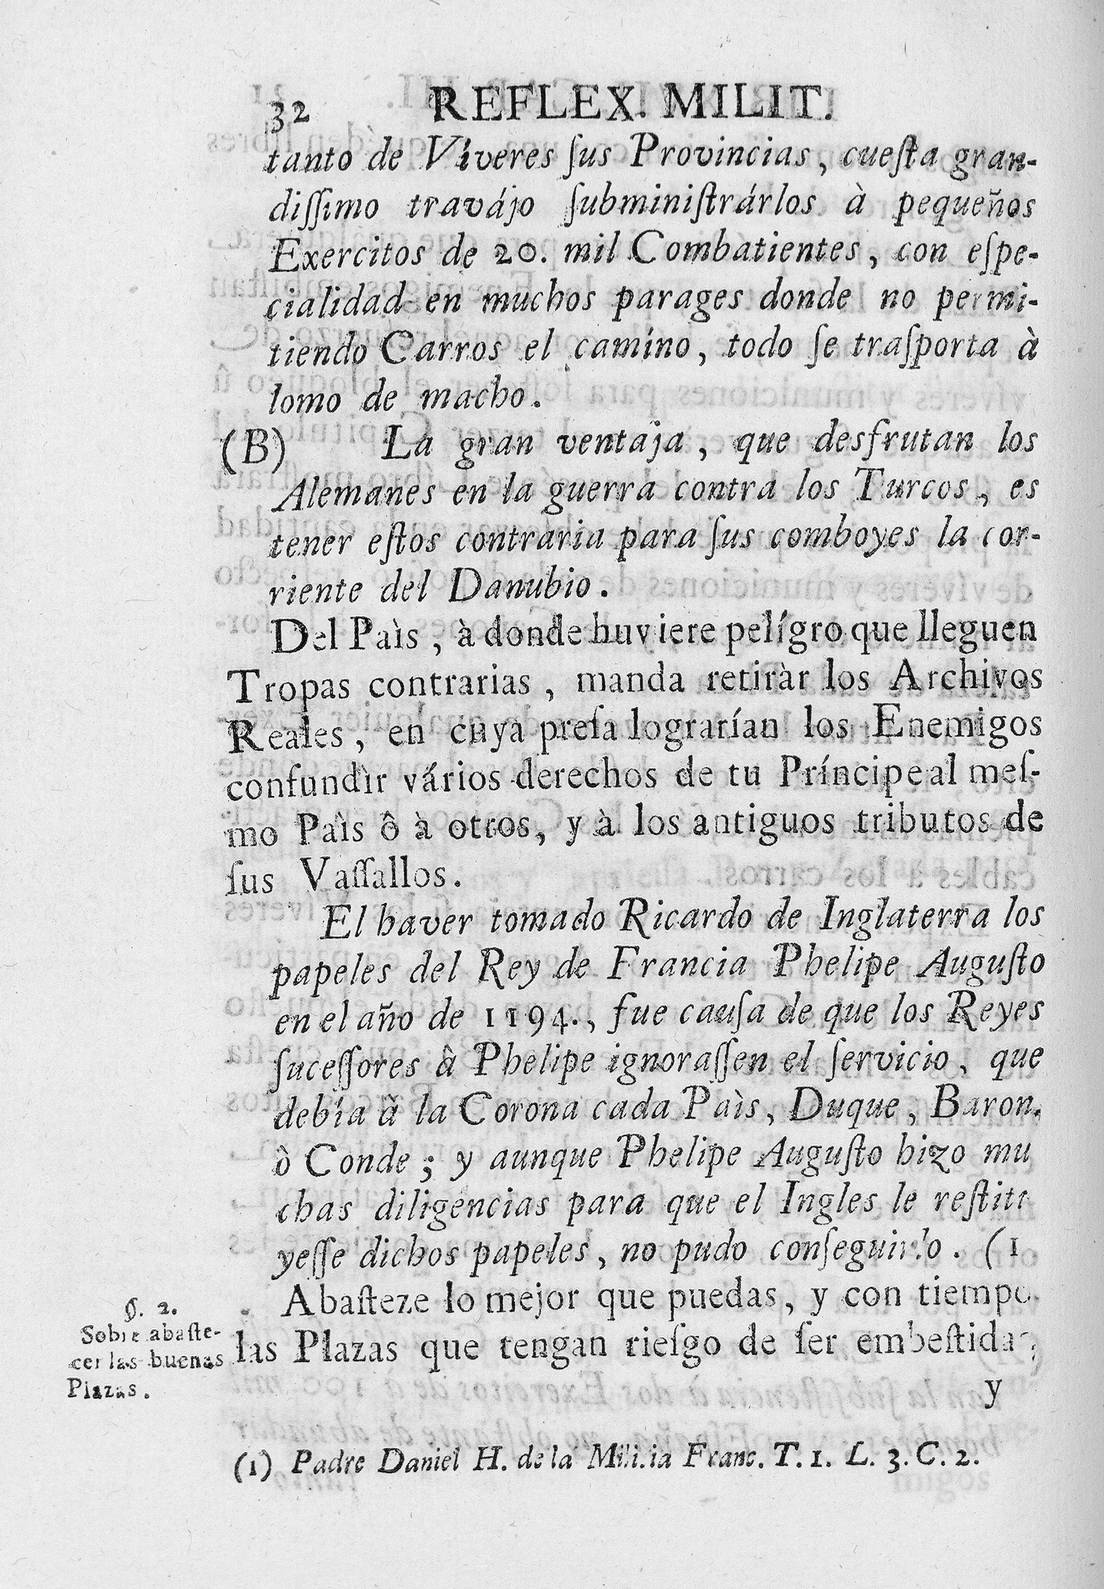 32 REFLEX. MILIT.
tanto de Víveres ſus Provincias, cueſta gran-
diſſimo travájo ſubminiſtrárlos à pequeños
Exercitos de 20. mil Combatientes, con eſpe-
cialidad en muchos parages donde no permi-
tiendo Carros el camíno, todo ſe traſporta à
lomo de macho.
(B) La gran ventaja, que desfrutan los
Alemanes en la guerra contra los Turcos, es
tener eſtos contraria para ſus comboyes la cor-
riente del Danubio.
Del Paìs, à donde huviere pelígro que lleguen
Tropas contrarias, manda retiràr los Archivos
Reales, en cuya preſa lograrían los Enemigos
confundìr vários derechos de tu Príncipe al meſ-
mo Paìs ô à otros, y à los antiguos tributos de
ſus Vaſſallos.
El haver tomado Ricardo de Inglaterra los
papeles del Rey de Francia Phelipe Auguſto
en el año de 1194., fue cauſa de que los Reyes
ſuceſſores â Phelipe ignoraſſen el ſervicio, que
debía â la Corona cada Paìs, Duque, Baron,
ò Conde; y aunque Phelipe Auguſto hizo mu
chas diligencias para que el Ingles le reſtitu
yeſſe dichos papeles, no pudo conſeguirlo. (1
§. 2.
Sobre abaſte-
cer las buenas
Plazas.
Abaſteze lo mejor que puedas, y con tiempo
las Plazas que tengan rieſgo de ſer embeſtidas;
y
(1) Padre Daniel H. de la Milicia Franc. T. 1. L. 3. C. 2.